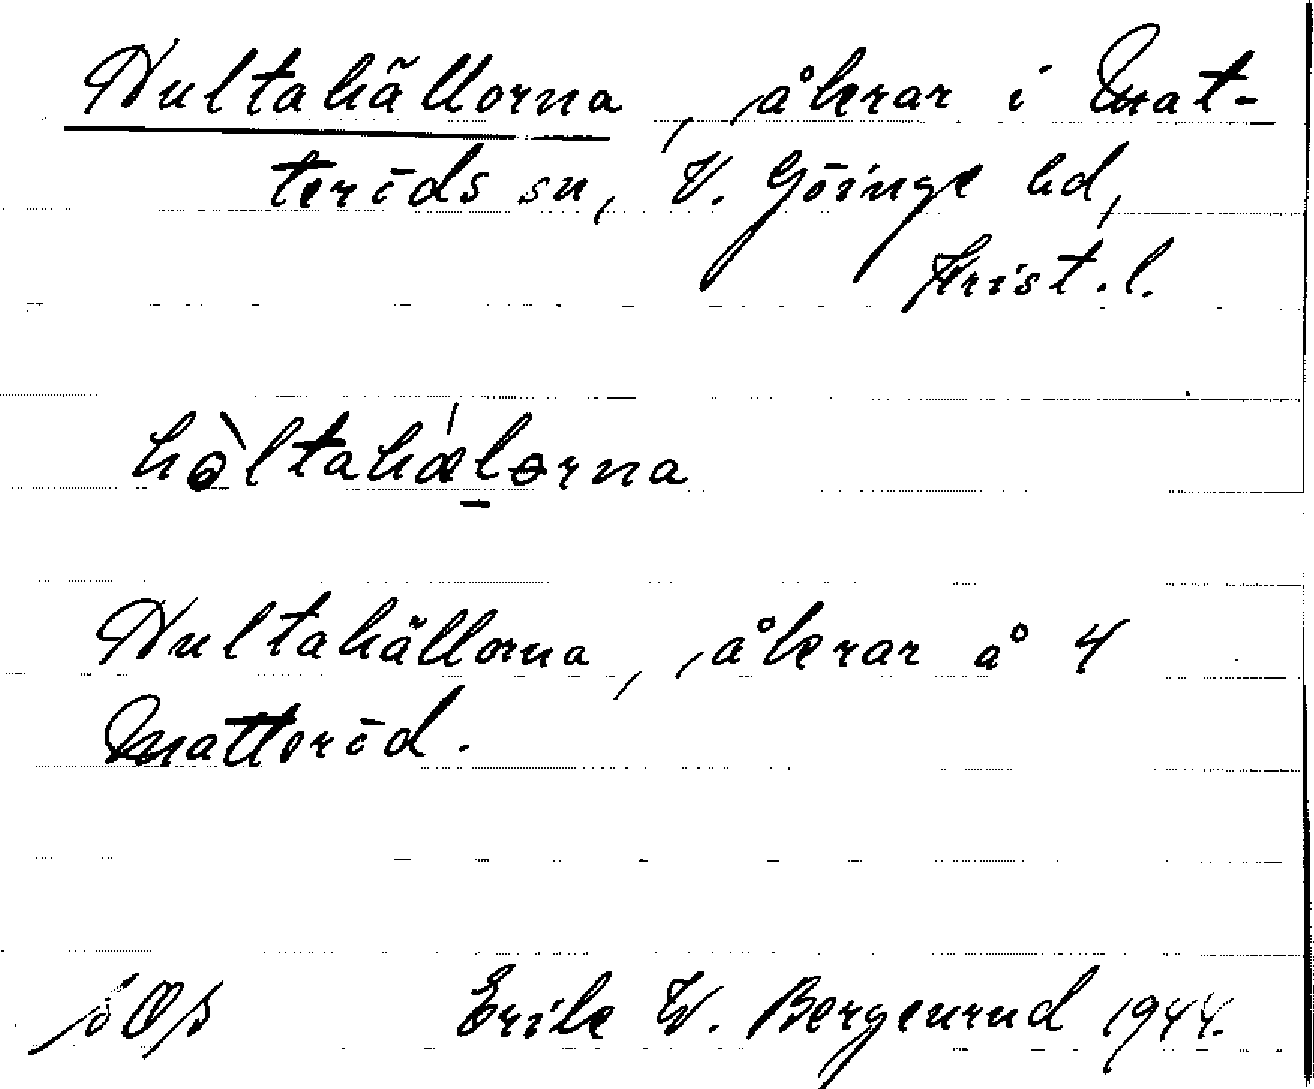 Hultahällorna, åkrar i Mat-
teröds sn, V. Göinge hd,
Krist. l.
hòltahǽlorna
Hultahällorna, åkrar å 4
Matteröd.
Erik W. Bergenrud 1944.